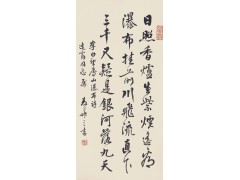 日照香爐生紫煙遙看
瀑布挂前川飛流直下
三千尺疑是銀河落九天
李白望廬山瀑布詩